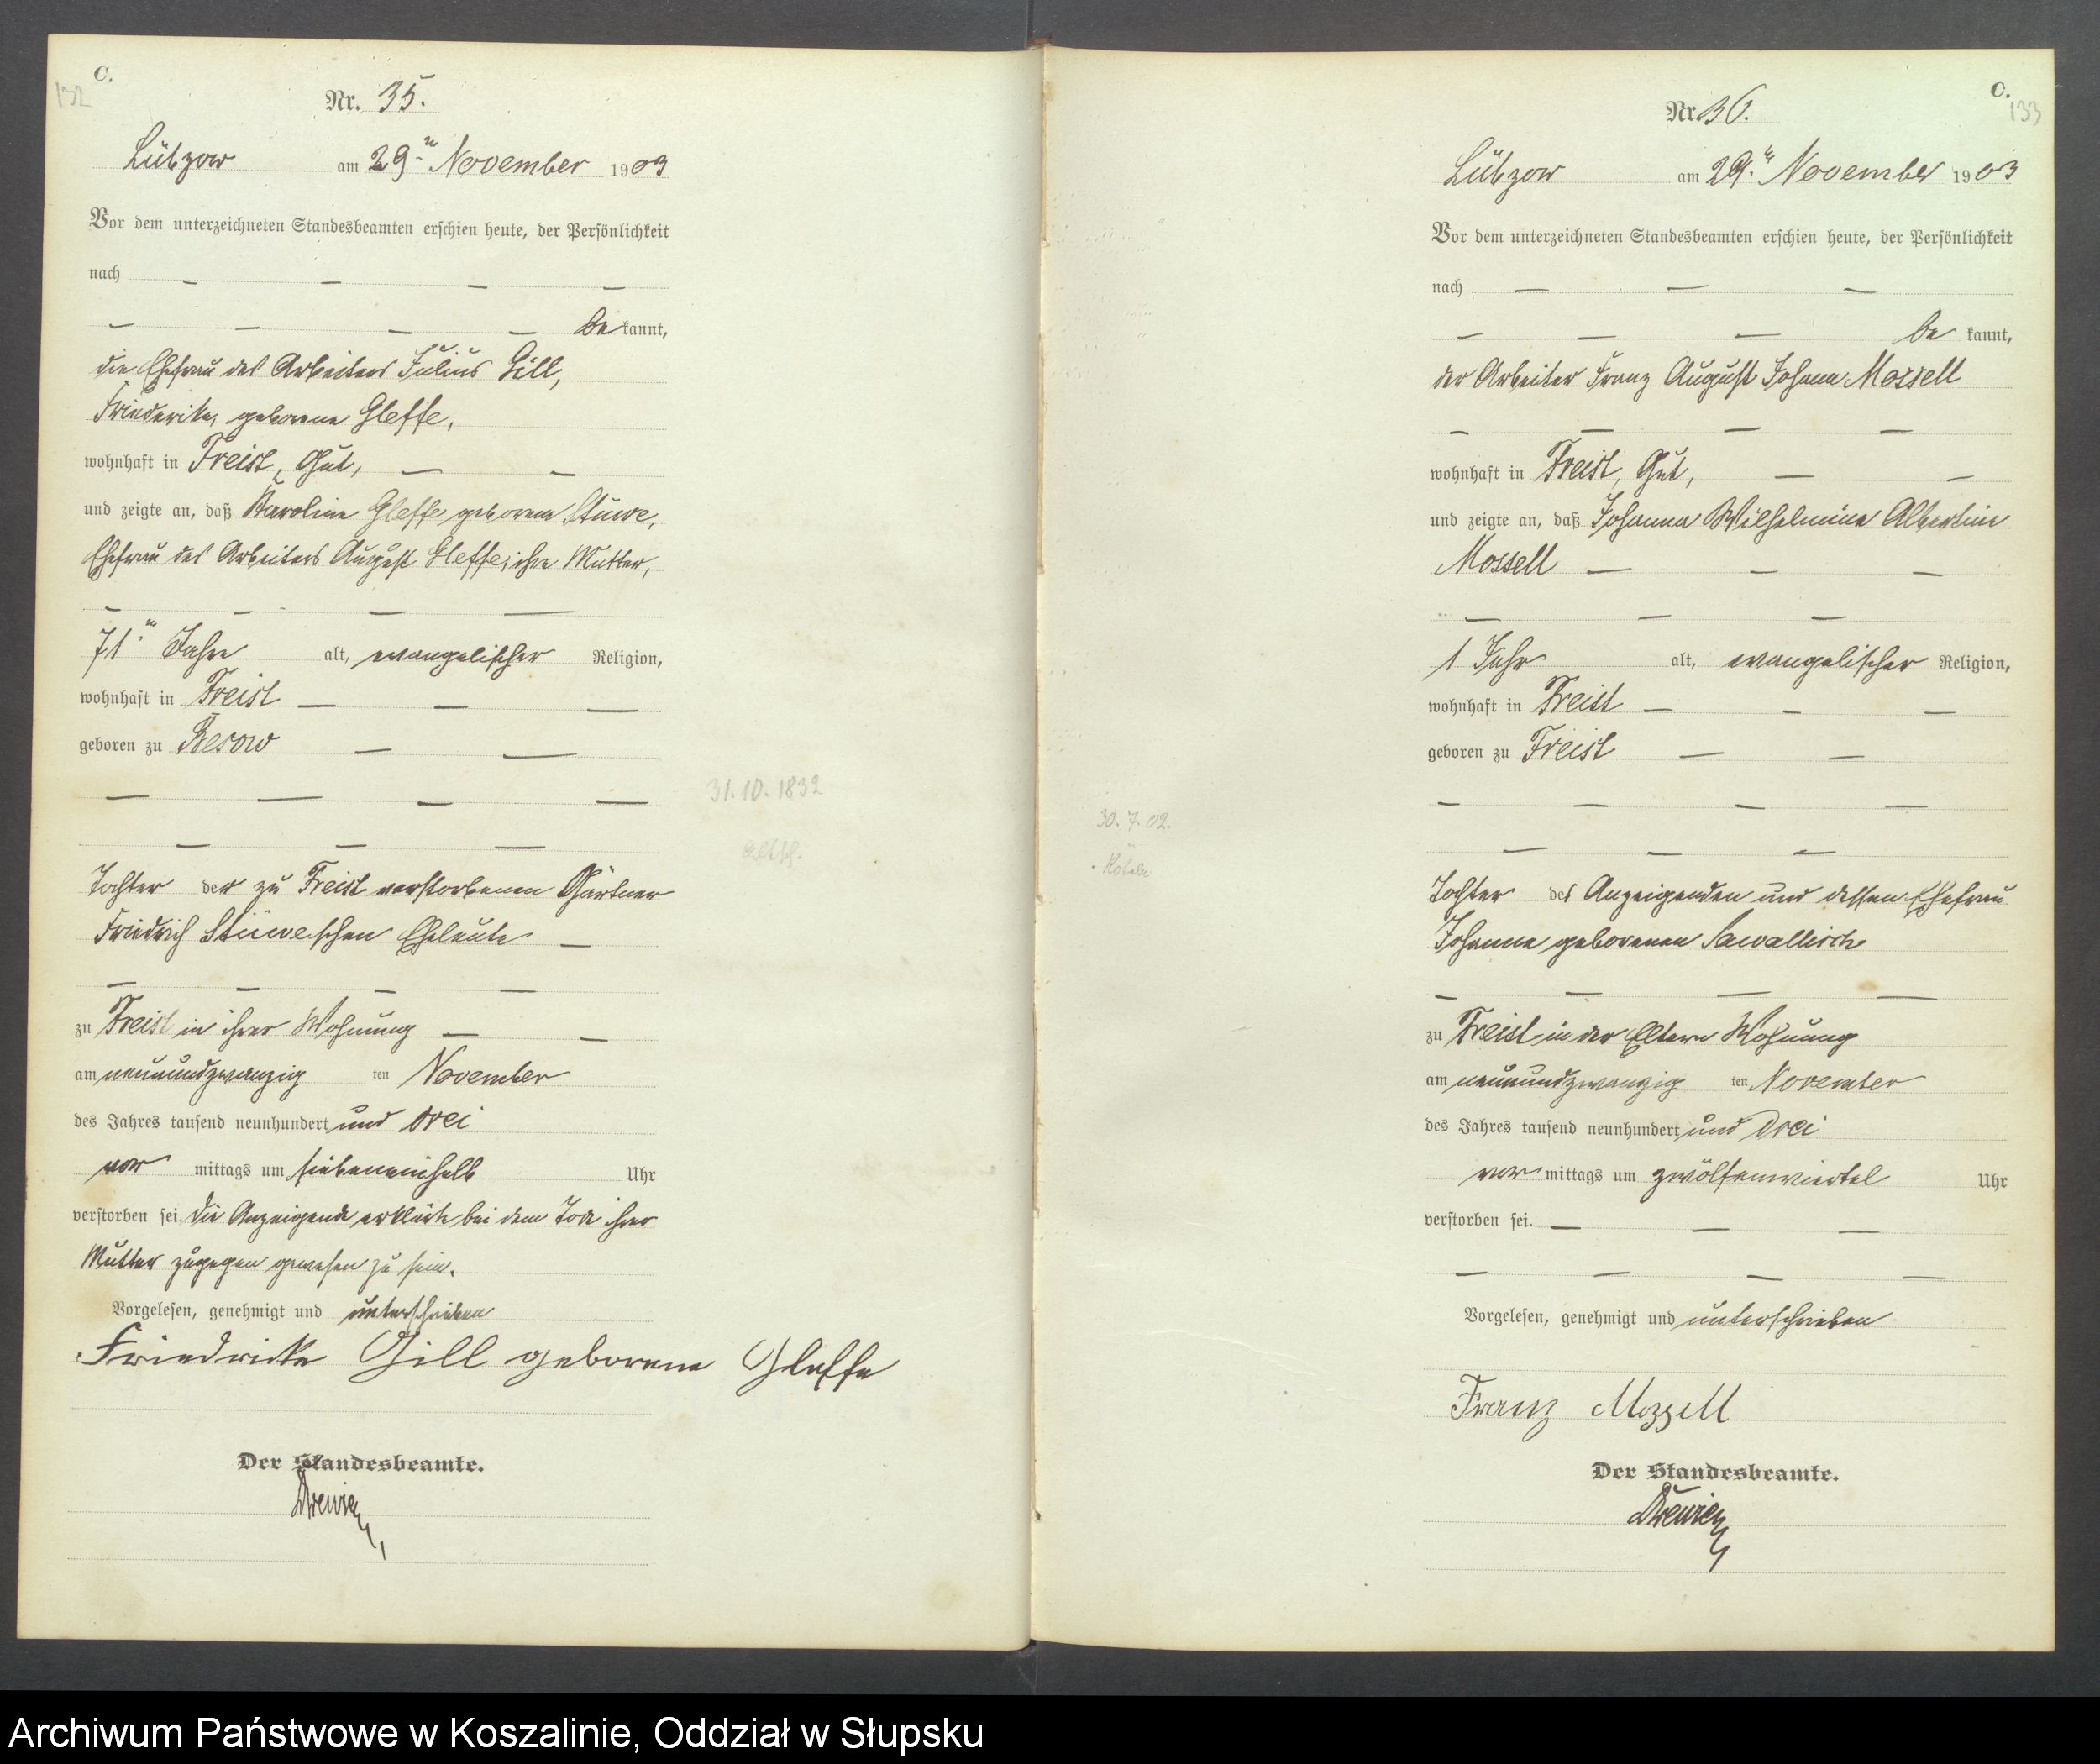 C.
132
Nr. 35.
Lübzow am 29ten November 1903
Vor dem unterzeichneten Standesbeamten erschien heute, der Persönlichkeit
nach — — — —
— — — — bekannt,
die Ehefrau des Arbeiters Julius Gill,
Friederike, geborene Gleffe,
wohnhaft in Freist, Gut, — —
und zeigte an, daß Karoline Gleffe geborene Stüwe,
Ehefrau des Arbeiters August Gleffe, ihre Mutter,
— — — —
71 Jahre alt, evangelischer Religion,
wohnhaft in Freist — — —
geboren zu Besow — —
— — — —
31.10.1832
— — —
Tochter der zu Freist verstorbenen Gärtner
Friedrich Stüweschen Eheleute —
— — — —
zu Freist in ihrer Wohnung — —
am neunundzwanzigten November
des Jahres tausend neunhundert und drei
vormittags um siebeneinhalb Uhr
verstorben sei. Die Anzeigende erklärte bei dem Tode ihrer
Mutter zugegen gewesen zu sein.
Vorgelesen, genehmigt und unterschrieben
Friedricke Gill geborene Gleffe
Der Standesbeamte.
Drewien
C.
133
Nr. 36.
Lübzow am 29ten November 1903
Vor dem unterzeichneten Standesbeamten erschien heute, der Persönlichkeit
nach — — —
— — — bekannt,
der Arbeiter Franz August Johann Mossell
— — — —
wohnhaft in Freist, Gut, — —
und zeigte an, daß Johanna Wilhelmine Albertine
Mossell — — —
— — —
1 Jahr alt, evangelischer Religion,
wohnhaft in Freist — — —
geboren zu Freist — —
— — — —
30.7.02.
— — —
Tochter des Anzeigenden und dessen Ehefrau
Johanne geborenen Sawallisch
— — — —
zu Freist in der Eltern Wohnung
am neunundzwanzigten November
des Jahres tausend neunhundert und drei
vormittags um zwölfeinviertel Uhr
verstorben sei. — — —
— — — —
Vorgelesen, genehmigt und unterschrieben
Franz Mozzell
Der Standesbeamte.
Drewien
Archiwum Państwowe w Koszalinie, Oddział w Słupsku